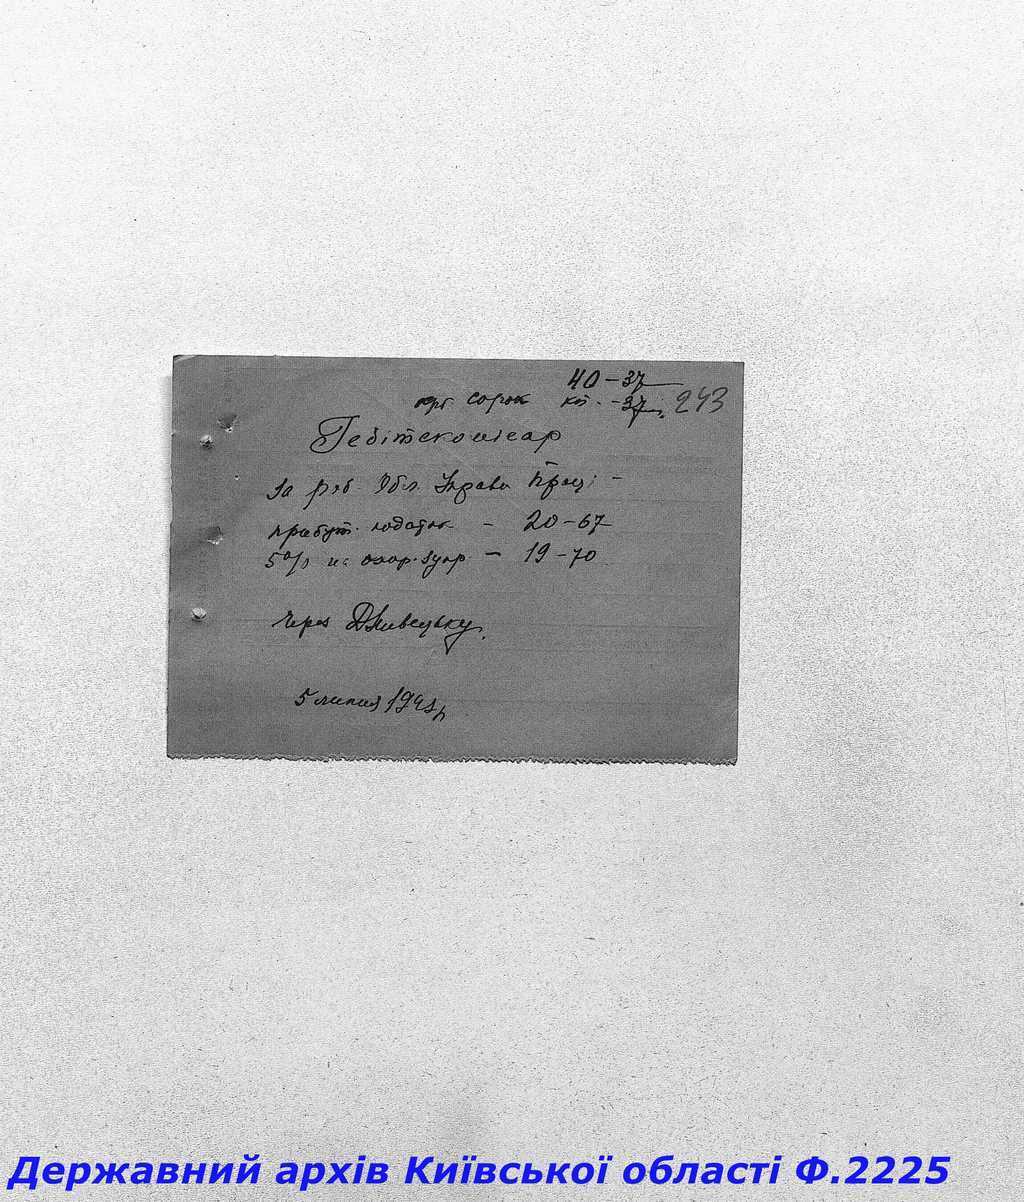 40-37
крб сорок коп. -37 243
Гебітскомісар
За роб. Обл. Управи Праці -
прибут. податок - 20-67
5% - 19-70
через
5 липня 194
Державний архів Київської області Ф.2225